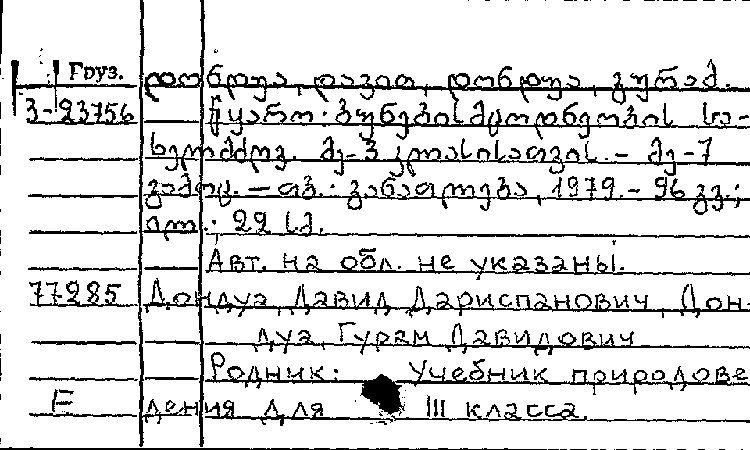 Груз. დონდუა, დავით, დონდუა, გურამ.
3-23756 წყარო: ბუნებისმცოდნეობის სა-
ხელმძღვ. მე-3 კლასისათვის. – მე-7
გამოც. – თბ.: განათლება, 1979. – 96 გვ.;
ილ.; 22 სმ.
Авт. на обл. не указаны.
77285 Дондуа, Давид Дариспанович, Дон-
дуа, Гурам Давидович
Родник: Учебник природове
F дения для III класса.